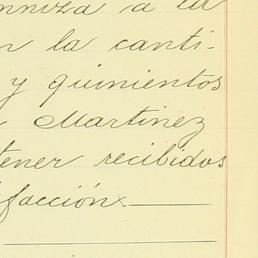 a la
la canti-
y quinientos
Martinez
tener recibidos
facción.